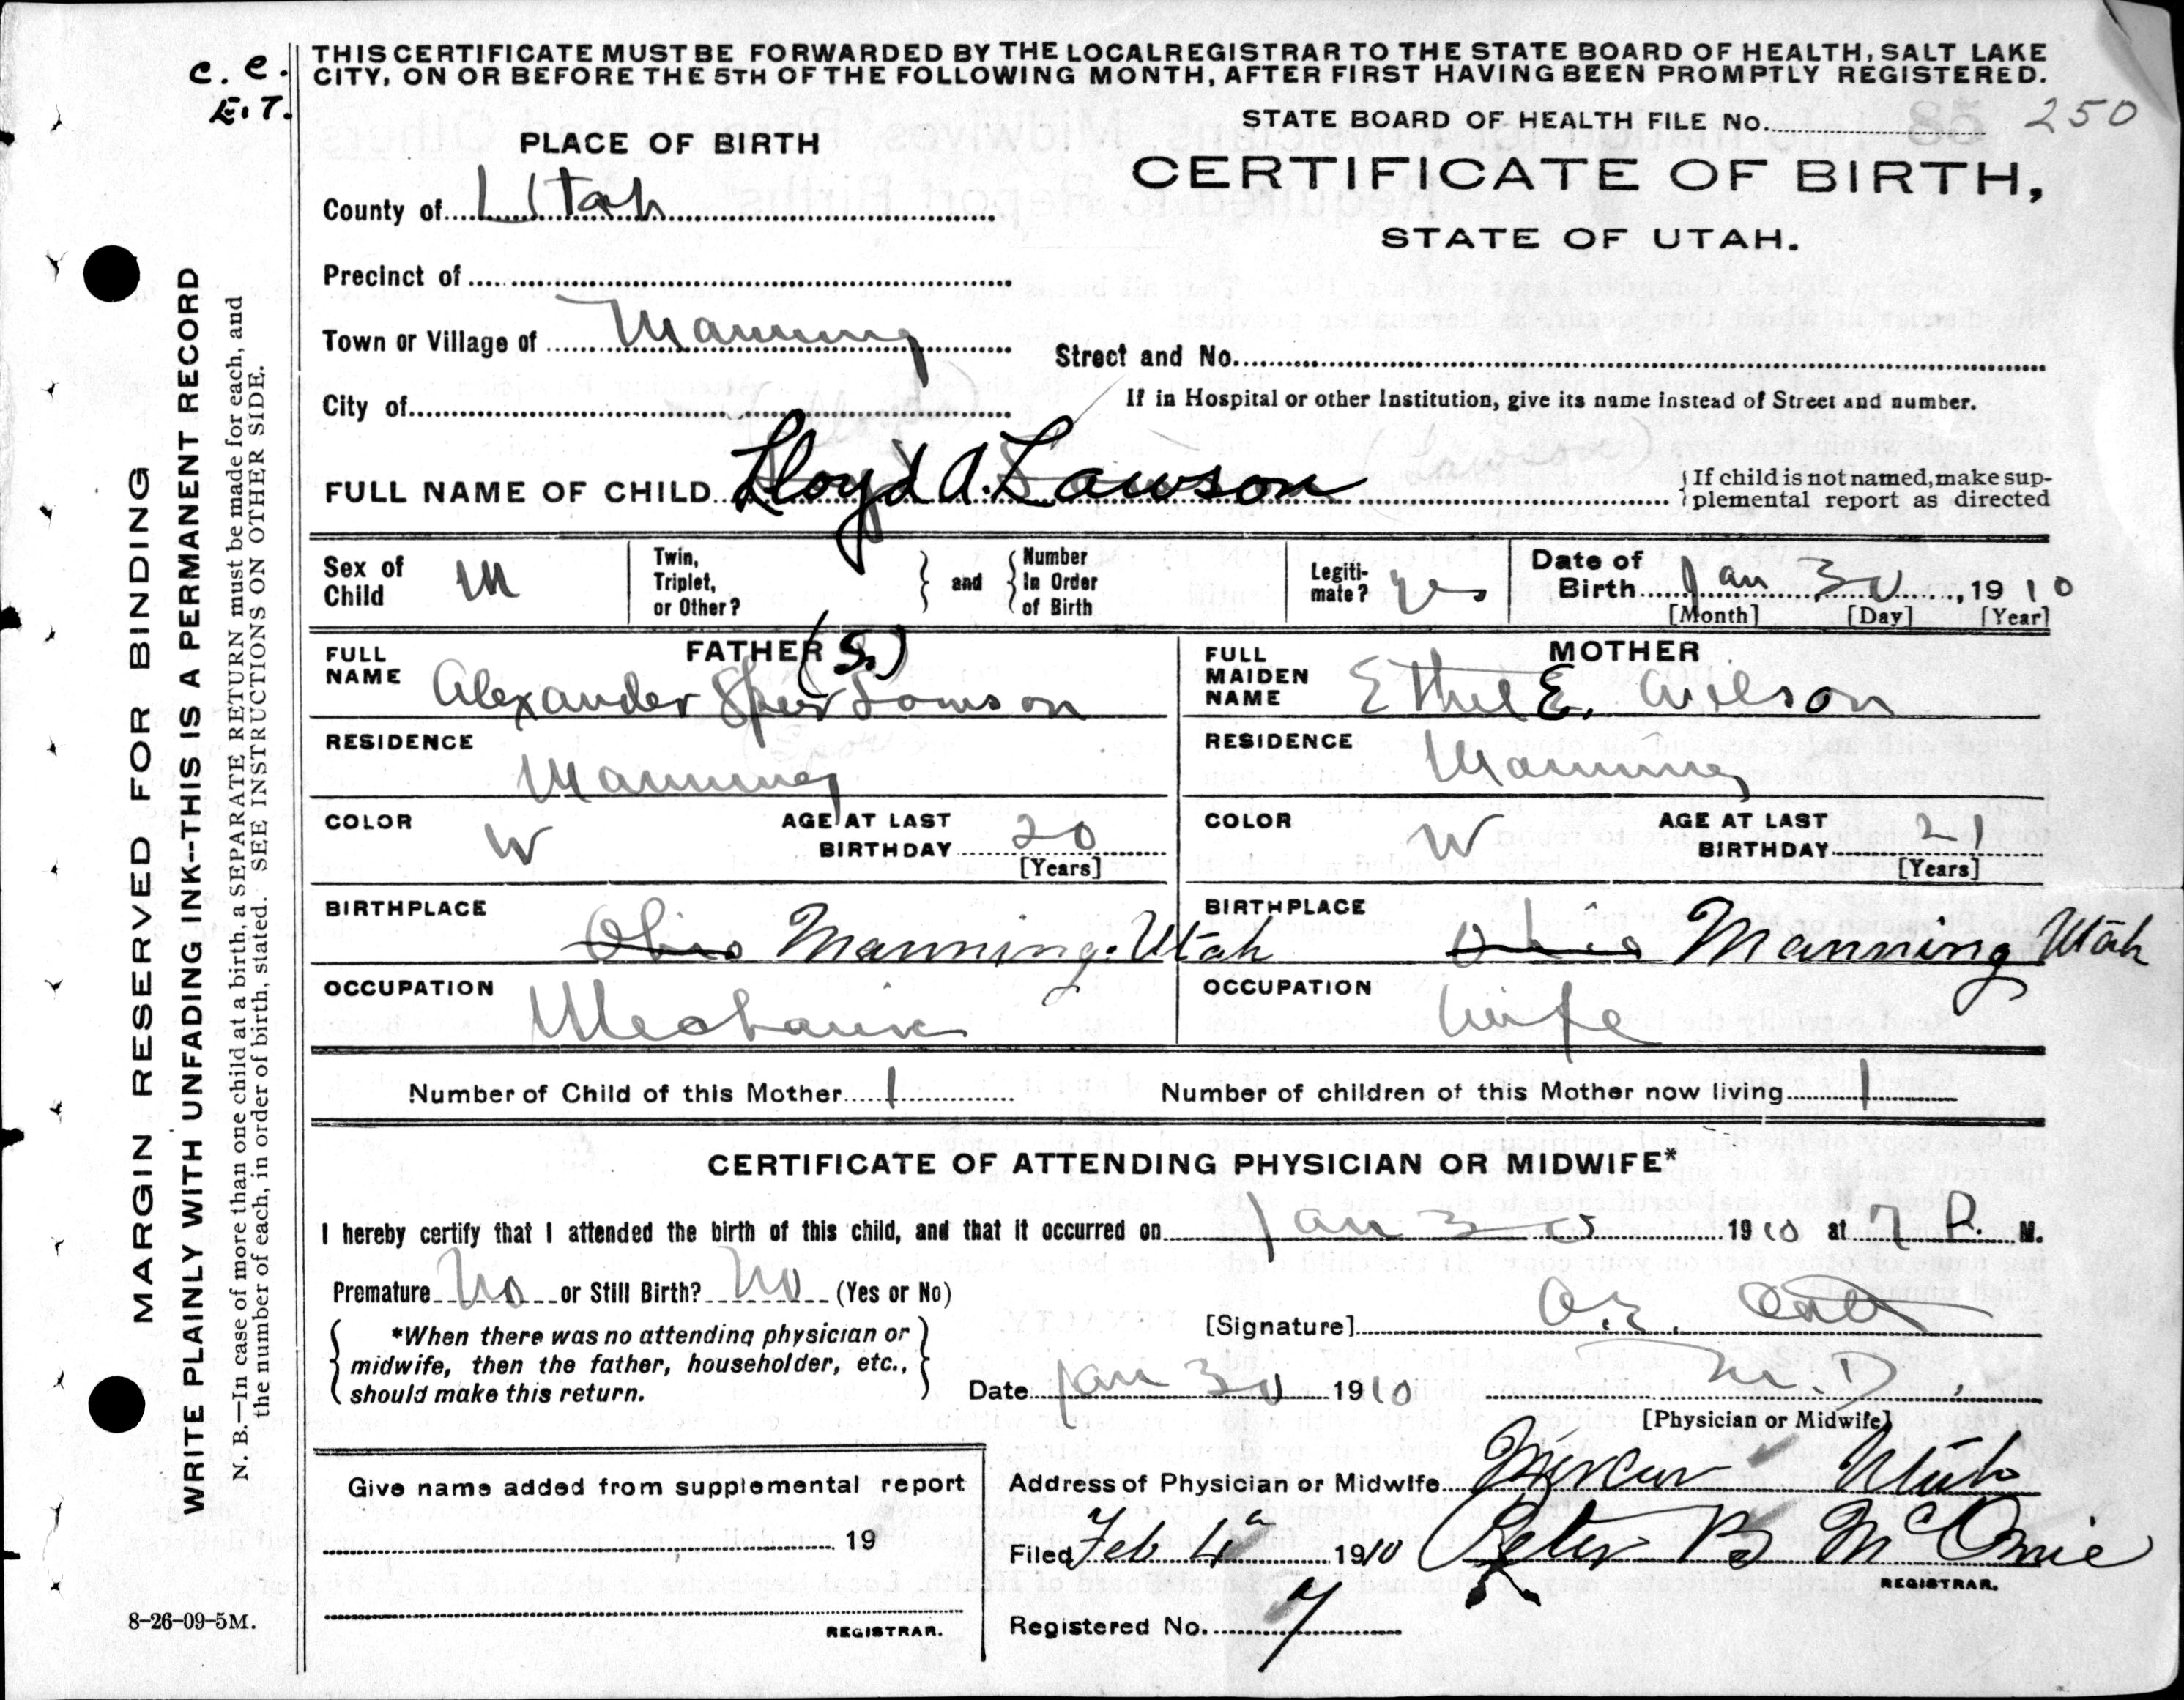 c. e.
E.T.
THIS CERTIFICATE MUST BE FORWARDED BY THE LOCAL REGISTRAR TO THE STATE BOARD OF HEALTH, SALT LAKE
CITY, ON OR BEFORE THE 5TH OF THE FOLLOWING MONTH, AFTER FIRST HAVING BEEN PROMPTLY REGISTERED.
STATE BOARD OF HEALTH FILE No. 250
PLACE OF BIRTH
CERTIFICATE OF BIRTH,
STATE OF UTAH.
County of Utah
Precinct of
Town or Village of Manning
Street and No.
City of
If in Hospital or other Institution, give its name instead of Street and number.
FULL NAME OF CHILD Lloyd A. Lawson
{If child is not named, make sup-
plemental report as directed
Sex of Child M
Twin, Triplet, or Other?
and
Number In Order of Birth
Legiti-mate? yes
Date of Birth Jan 30, 1910
[Month] [Day] [Year]
FATHER (S.)
FULL NAME Alexander Lawson
RESIDENCE Manning
COLOR W
AGE AT LAST BIRTHDAY 20
[Years]
BIRTHPLACE Ohio Manning. Utah
OCCUPATION Mechanic
MOTHER
FULL MAIDEN NAME Ethel E. Wilson
RESIDENCE Manning
COLOR W
AGE AT LAST BIRTHDAY 21
[Years]
BIRTHPLACE Ohio Manning Utah
OCCUPATION Wife
Number of Child of this Mother 1
Number of children of this Mother now living 1
CERTIFICATE OF ATTENDING PHYSICIAN OR MIDWIFE*
I hereby certify that I attended the birth of this child, and that it occurred on Jan 30 1910 at 7 P. M.
Premature No or Still Birth? No (Yes or No)
*When there was no attending physician or
midwife, then the father, householder, etc.,
should make this return.
[Signature]
Date Jan 30 1910 M.D.
[Physician or Midwife]
Address of Physician or Midwife Mercur Utah
Filed Feb 4 1910 Peter B McOmie
REGISTRAR.
Registered No. 7
Give name added from supplemental report
19
REGISTRAR.
8-26-09-5M.
MARGIN RESERVED FOR BINDING
WRITE PLAINLY WITH UNFADING INK--THIS IS A PERMANENT RECORD
N. B.—In case of more than one child at a birth, a SEPARATE RETURN must be made for each, and
the number of each, in order of birth, stated. SEE INSTRUCTIONS ON OTHER SIDE.